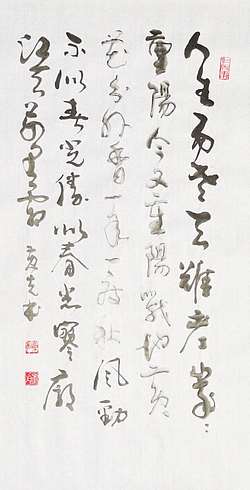 人生易老天難老歲〻
重陽今又重陽戰地黃
花分外香一年一度秋風勁
不似春光勝似春光寥廓
江天萬里霜